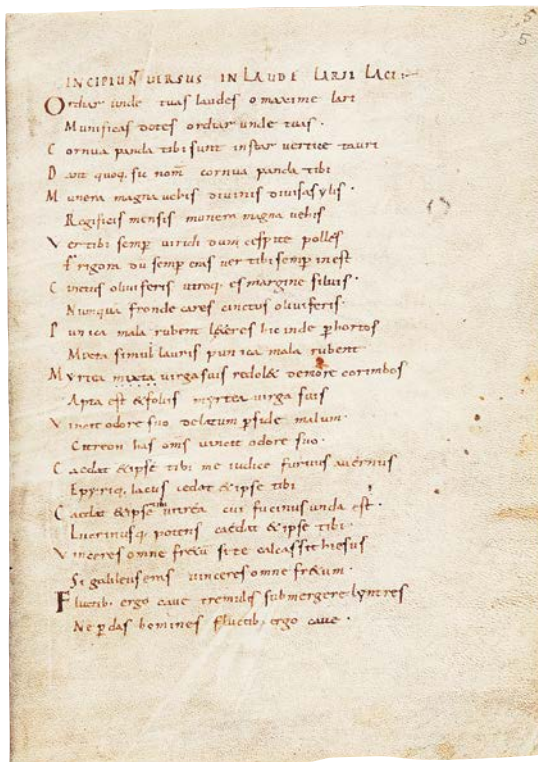 5
5
INCIPIUN̄ UERSUS IN LAUDE LARII LACI
Ordiar unde tuas laudes o maxime lari
Munificas dotes ordiar unde tuas.
Cornua panda tibi sunt instar vertice tauri
Dant quoq; sic nom̄ cornua panda tibi
Munera magna vehis divinis divisasylis.
Regificis mensis munera magna vehis
Ver tibi semp viridi dum cespite polles
Frigora dū semp eras ver tibi semp inest
Cinctus oliviferis utroq; es margine silvis.
Nunquā fronde cares cinctus oliviferis.
Punica mala rubent l&eres hic inde p hortos
Mixta simul lauris punica mala rubent
Myrtea mixta virga suis redol& de more corimbos
Apta est & foliis myrtea virga suis
Vincit odore suo delatum pside malum.
Citreon has oms vincit odore suo.
Caedat & ipse tibi me iudice furvus avernus
Epyriq; lacus cedat & ipse tibi
Caedat & ipse vitrea cui fucinus unda est.
Lucrinusq; potens caedat & ipse tibi.
Vinceres omne fr&ū si te calcassit hiesus
Si galileus eras vinceres omne fr&um.
Fluctib; ergo cave tremulis submergere lyntres
Ne pdas homines fluctib; ergo cave.